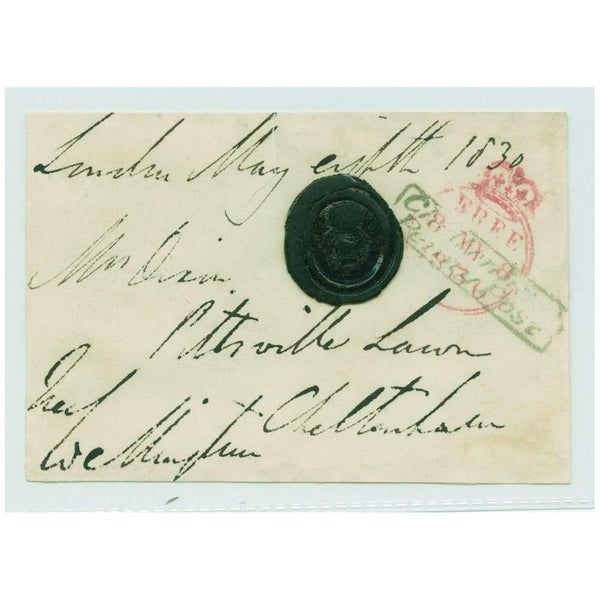 London May eighth 1830
FREE
8 MY 8
1830
Penny Post
Mrs Dixon
Pittville Lawn
Cheltenham
Wellington